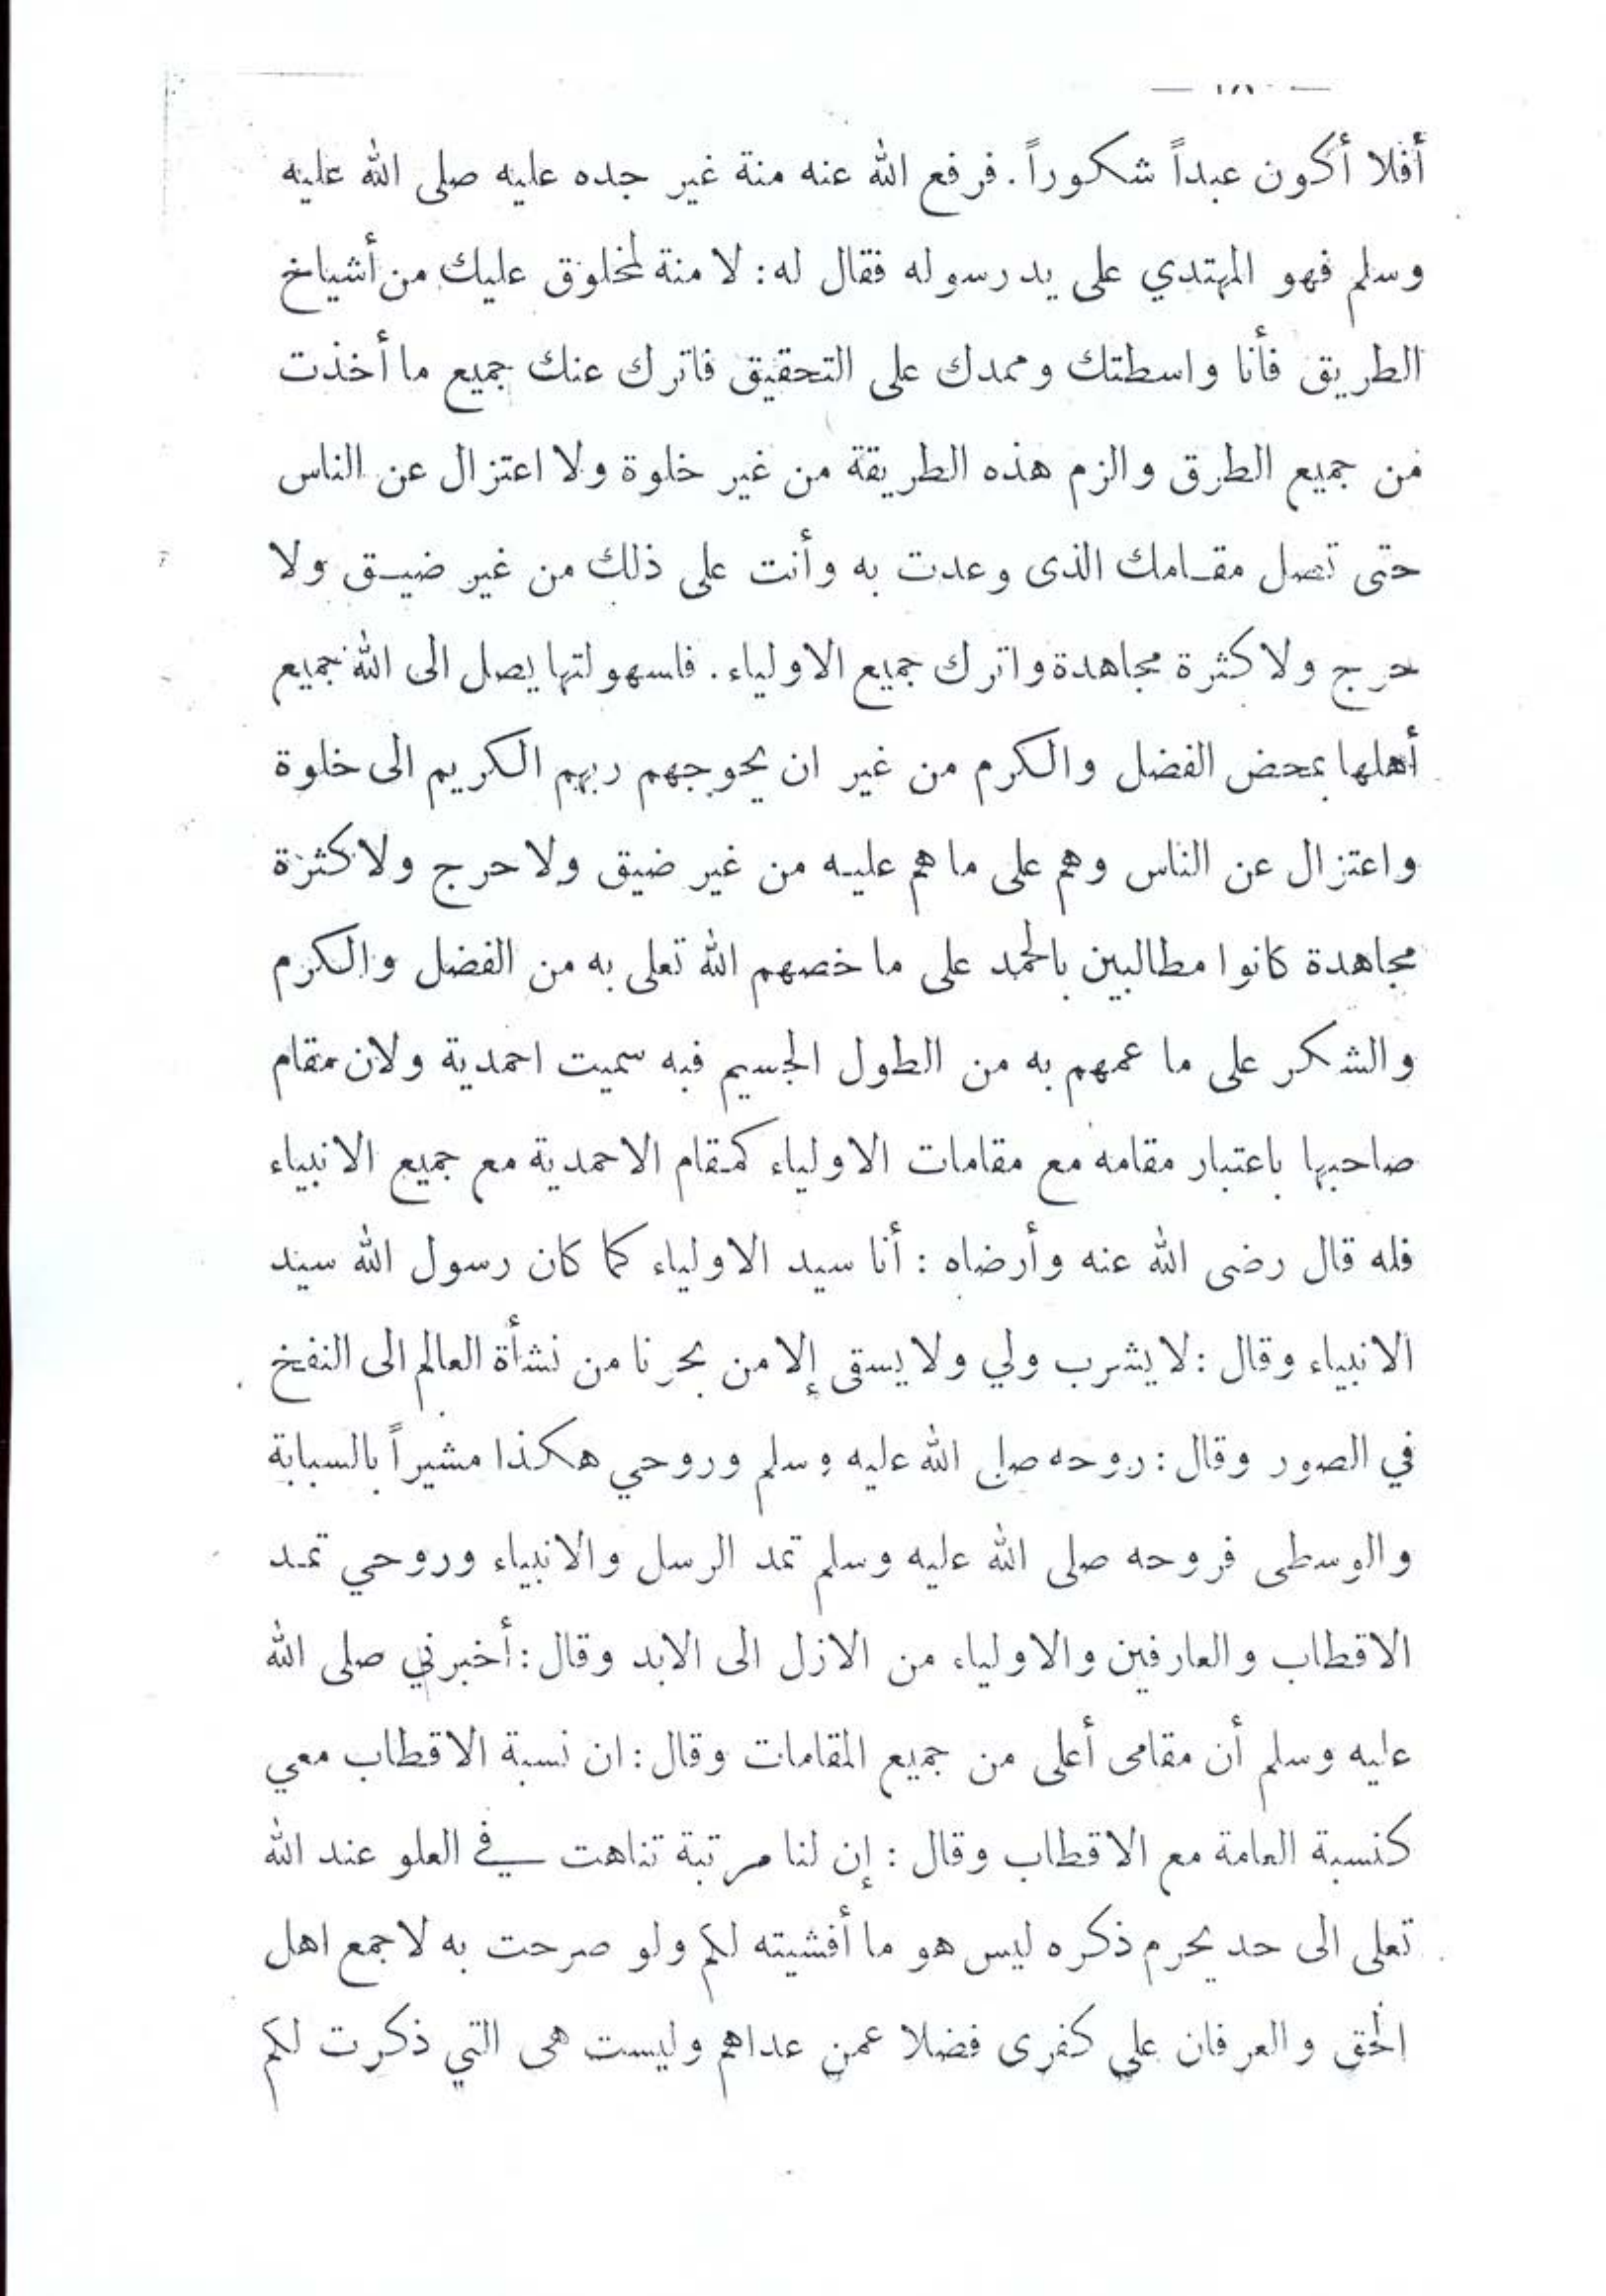 أفلا أكون عبداً شكوراً. فرفع الله عنه منة غير جده عليه صلى الله عليه
وسلم فهو المهتدي على يد رسوله فقال له: لا منة لمخلوق عليك من أشياخ
الطريق فأنا واسطتك وممدك على التحقيق فاترك عنك جميع ما أخذت
من جميع الطرق والزم هذه الطريقة من غير خلوة ولا اعتزال عن الناس
حتى تصل مقامك الذى وعدت به وأنت على ذلك من غير ضيق ولا
حرج ولا كثرة مجاهدة واترك جميع الاولياء. فلسهولتها يصل الى الله جميع
أهلها بمحض الفضل والكرم من غير ان يحوجهم ربهم الكريم الى خلوة
واعتزال عن الناس وهم على ما هم عليه من غير ضيق ولا حرج ولا كثرة
مجاهدة كانوا مطالبين بالحمد على ما خصهم الله تعلى به من الفضل والكرم
والشكر على ما عمهم به من الطول الجسيم فبه سميت احمدية ولان مقام
صاحبها باعتبار مقامه مع مقامات الاولياء كمقام الاحمدية مع جميع الانبياء
فله قال رضى الله عنه وأرضاه : أنا سيد الاولياء كما كان رسول الله سيد
الانبياء وقال : لا يشرب ولي ولا يسقى إلا من بحرنا من نشأة العالم الى النفخ
في الصور وقال : روحه صلى الله عليه وسلم وروحي هكذا مشيراً بالسبابة
والوسطى فروحه صلى الله عليه وسلم تمد الرسل والانبياء وروحي تمد
الاقطاب والعارفين والاولياء من الازل الى الابد وقال : أخبرني صلى الله
عليه وسلم أن مقامى أعلى من جميع المقامات وقال : ان نسبة الاقطاب معي
كنسبة العامة مع الاقطاب وقال : إن لنا مرتبة تناهت في العلو عند الله
تعلى الى حد يحرم ذكره ليس هو ما أفشيته لكم ولو صرحت به لاجمع اهل
الحق والعرفان على كفرى فضلا عمن عداهم وليست هى التي ذكرت لكم